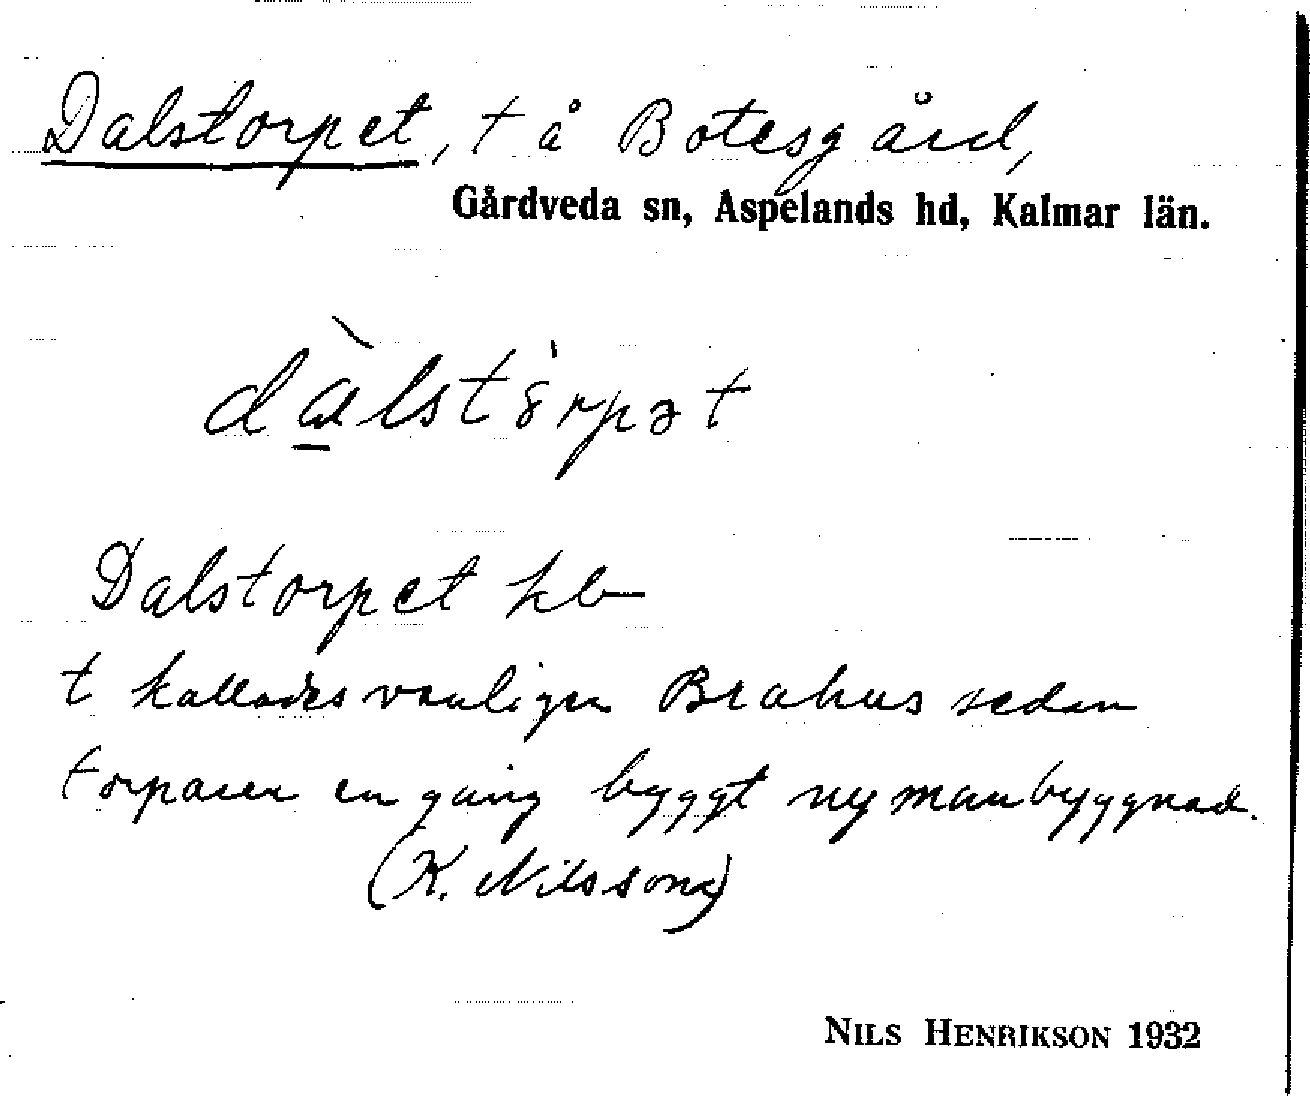 Dalstorpet, t å Botesgård,
Gårdveda sn, Aspelands hd, Kalmar län.
dàlstörpət
Dalstorpet hb
t kallades vanligen Brahus sedan
torparen en gång byggt ny manbyggnad.
(K. Nilsson)
NILS HENRIKSON 1932